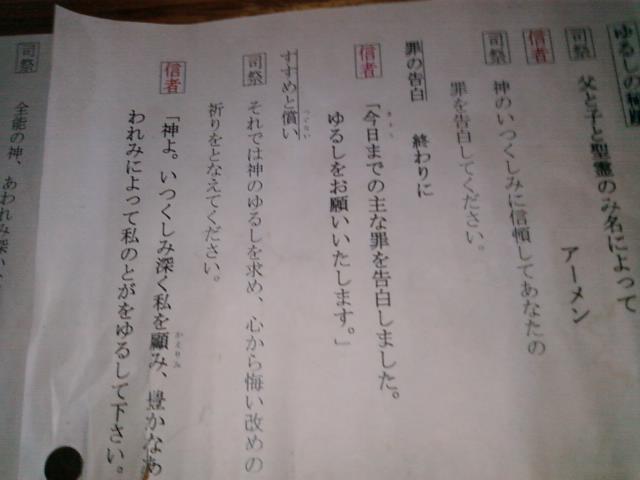 ゆるしの秘跡
司祭 父と子と聖霊のみ名によって
信者 アーメン
司祭 神のいつくしみに信頼してあなたの
罪を告白してください。
罪の告白 終わりに
信者 「今日までの主な罪を告白しました。
ゆるしをお願いいたします。」
すすめと償い
司祭 それでは神のゆるしを求め、心から悔い改めの
祈りをとなえてください。
信者 「神よ。いつくしみ深く私を顧み、豊かなあ
われみによって私のとがをゆるして下さい。
司祭 全能の神、あわれみ深い